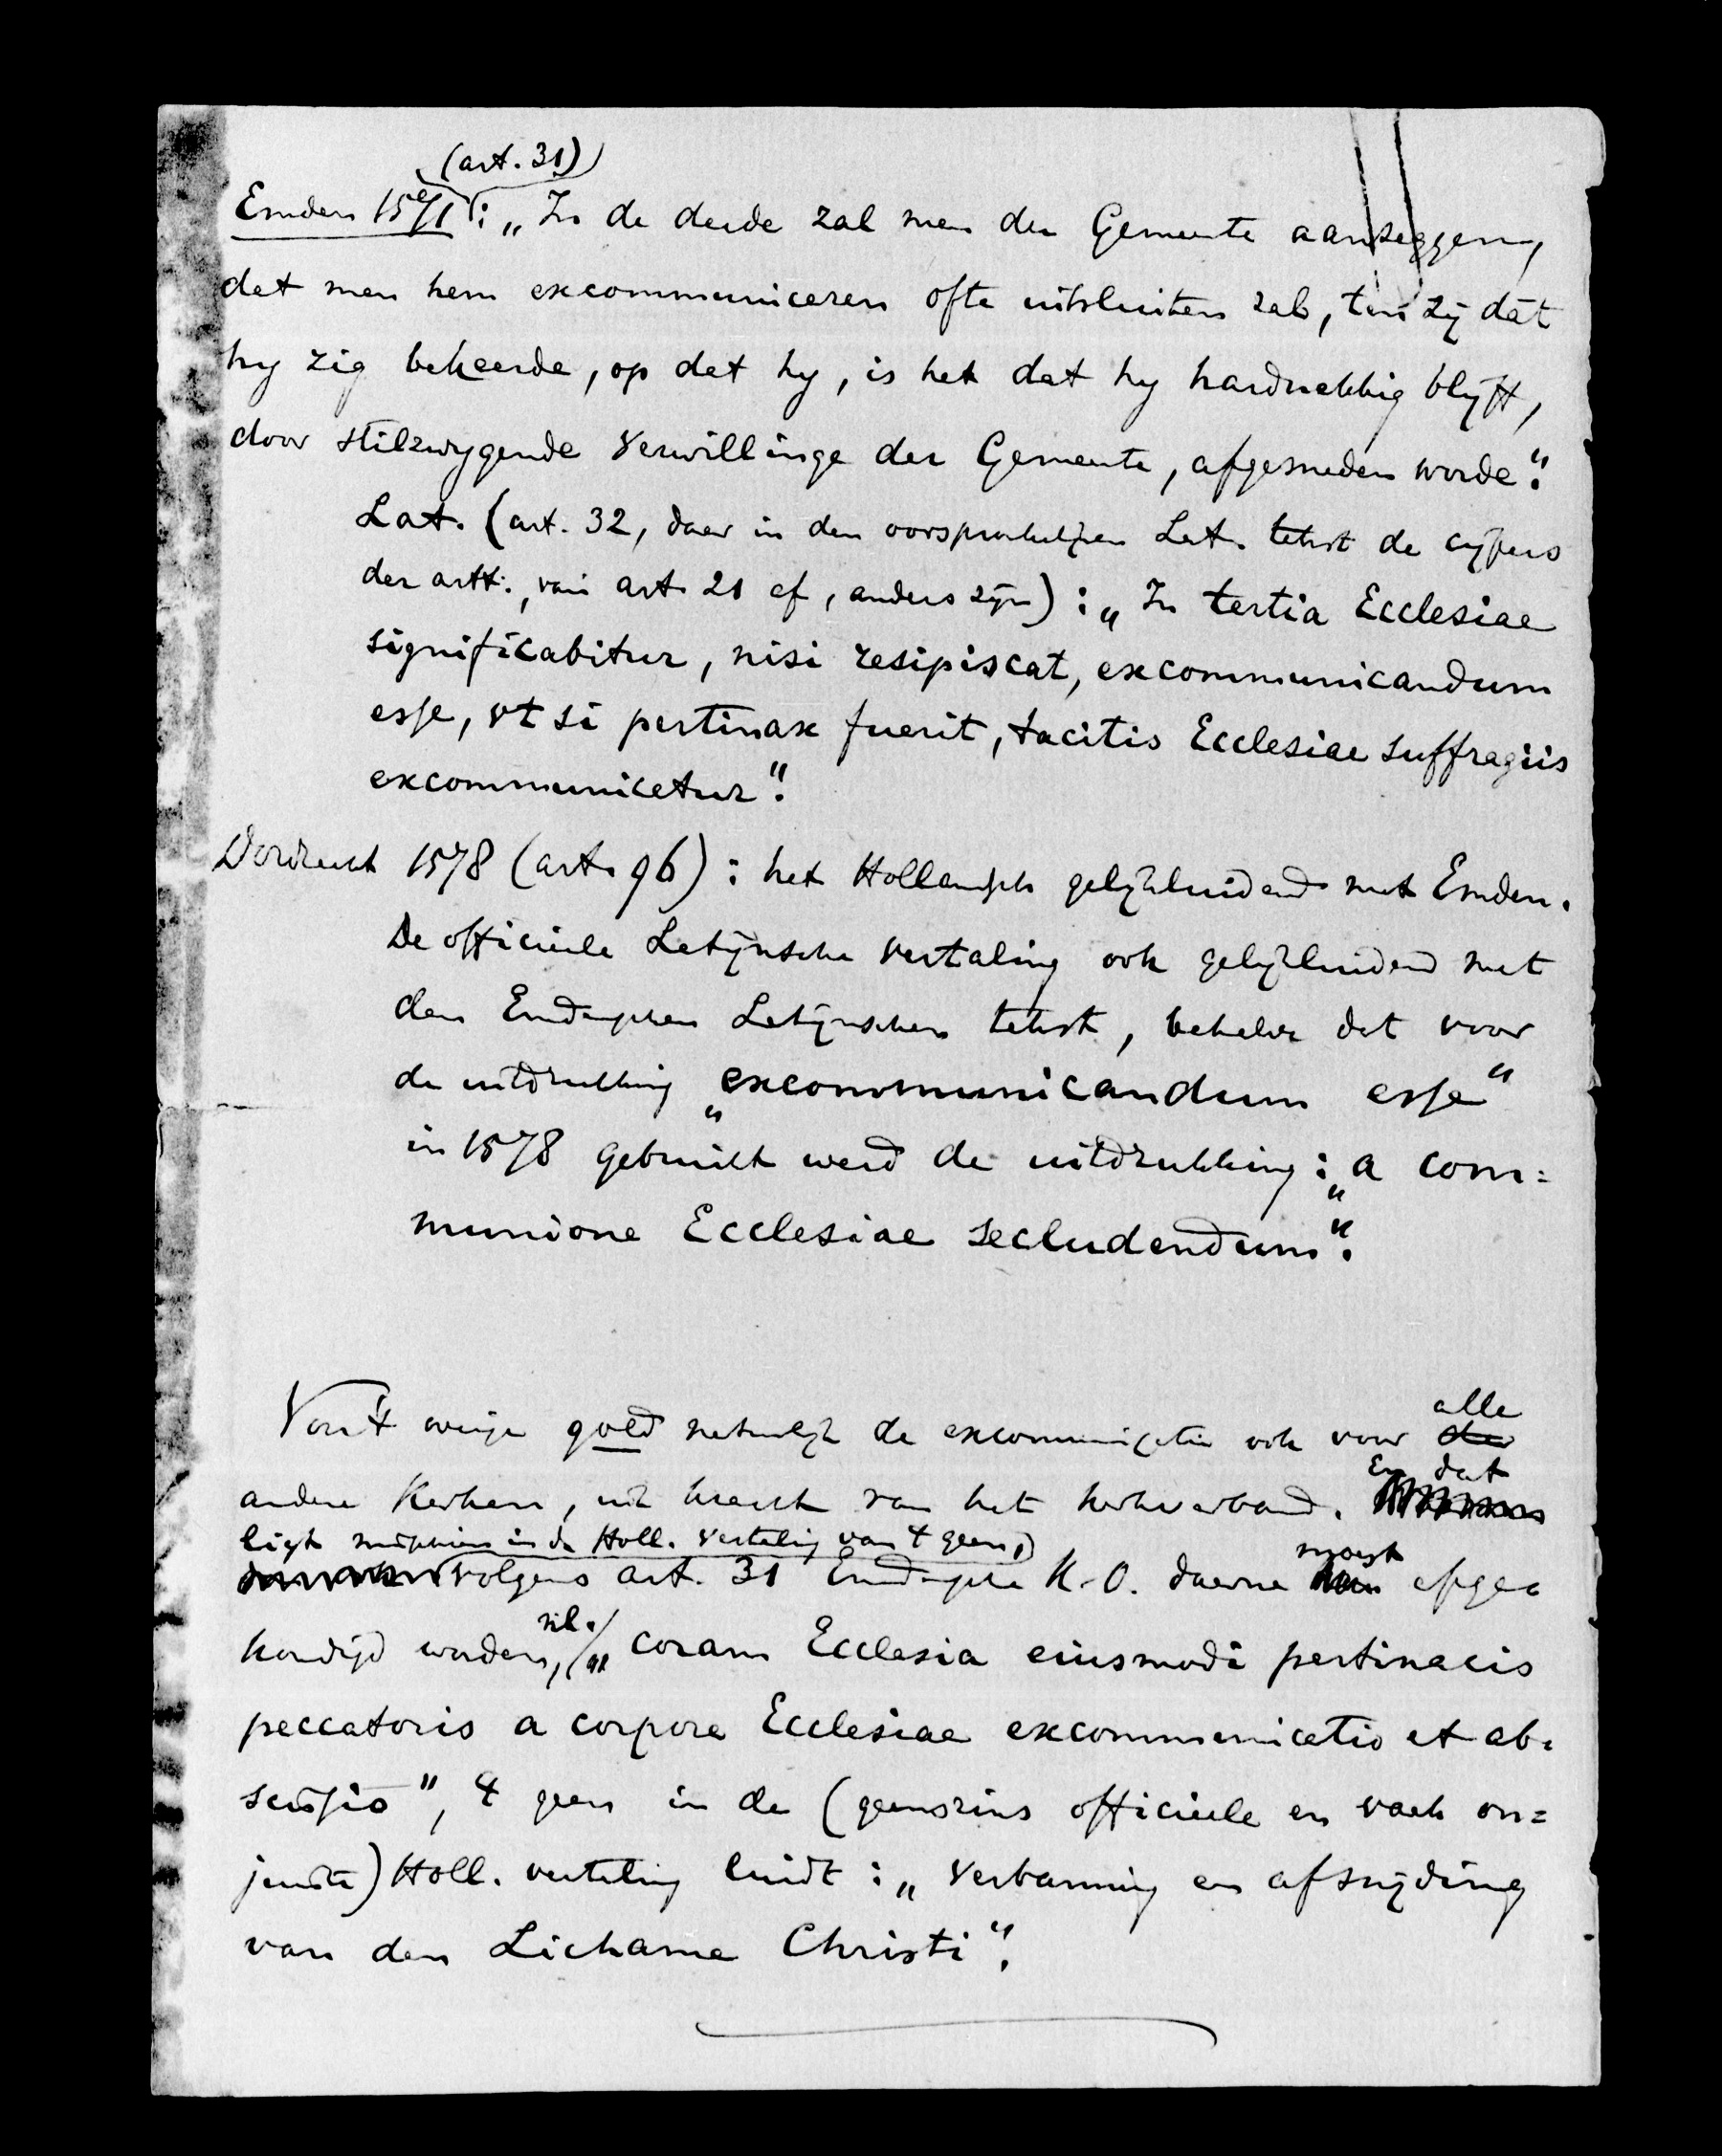 (art. 31)
Emden 1571: „In de derde zal men der Gemeente aanzeggen,
dat men hem excommuniceren ofte uitsluiten zal, ten zij dat
hy zig bekeerde, op dat hy, is het dat hy hardnekkig blyft,
door stilzwygende Verwillinge der Gemeente, afgesneden worde".
Lat. (art. 32, daar in den oorspronkelijken Lat. tekst de cijfers
der artt., van art. 21 af, anders zijn): „In tertia Ecclesiae
significabitur, nisi resipiscat, excommunicandum
esse, vt si pertinax fuerit, tacitis Ecclesiae suffragiis
excommunicetur".
Dordrecht 1578 (art. 96): het Hollandsch gelijkluidend met Emden.
De officieele Latijnsche vertaling ook gelijkluidend met
den Emdenschen Latijnschen tekst, behalve dat voor
de uitdrukking „excommunicandum esse"
in 1578 gebruikt werd de uitdrukking: „a com=
munione Ecclesiae secludendum".
Voor 't overige gold natuurlijk de excommunicatie ook voor alle
andere Kerken, uit kracht van het kerkverband. En dat
ligt misschien in de Holl. vertaling van 't geen,
volgens art. 31 Emdensche K.O. daarna moest afge=
kondigd worden, nl. „coram Ecclesia eiusmodi pertinacis
peccatoris a corpore Ecclesiae excommunicatio et ab=
scissio", 't geen in de (geenszins officieele en vaak on=
juiste) Holl. vertaling luidt: „Verbanning en afsnijding
van den Lichame Christi".